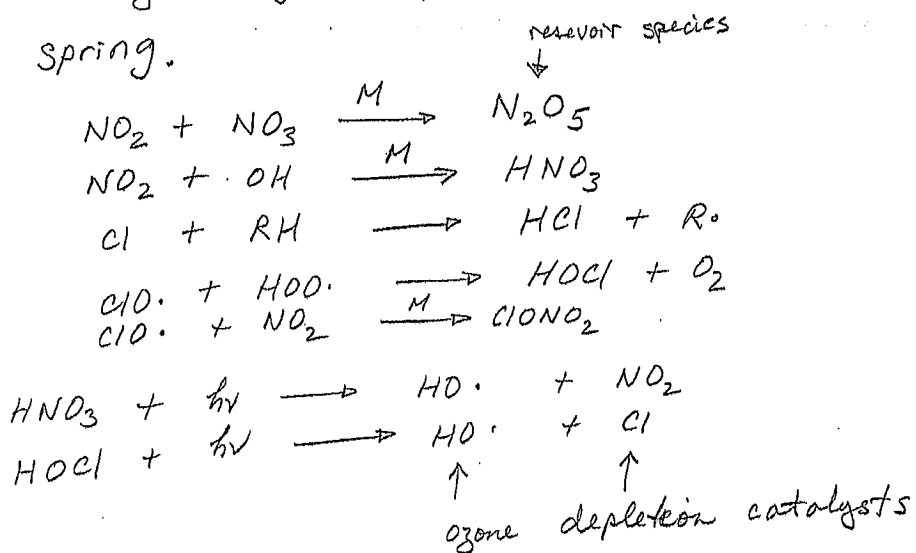 spring.
resevoir species
↓
NO₂ + NO₃ —M→ N₂O₅
NO₂ + ·OH —M→ HNO₃
Cl + RH → HCl + R·
ClO· + HOO· → HOCl + O₂
ClO· + NO₂ —M→ ClONO₂
HNO₃ + hν → HO· + NO₂
HOCl + hν → HO· + Cl
↑ ↑
ozone depletion catalysts